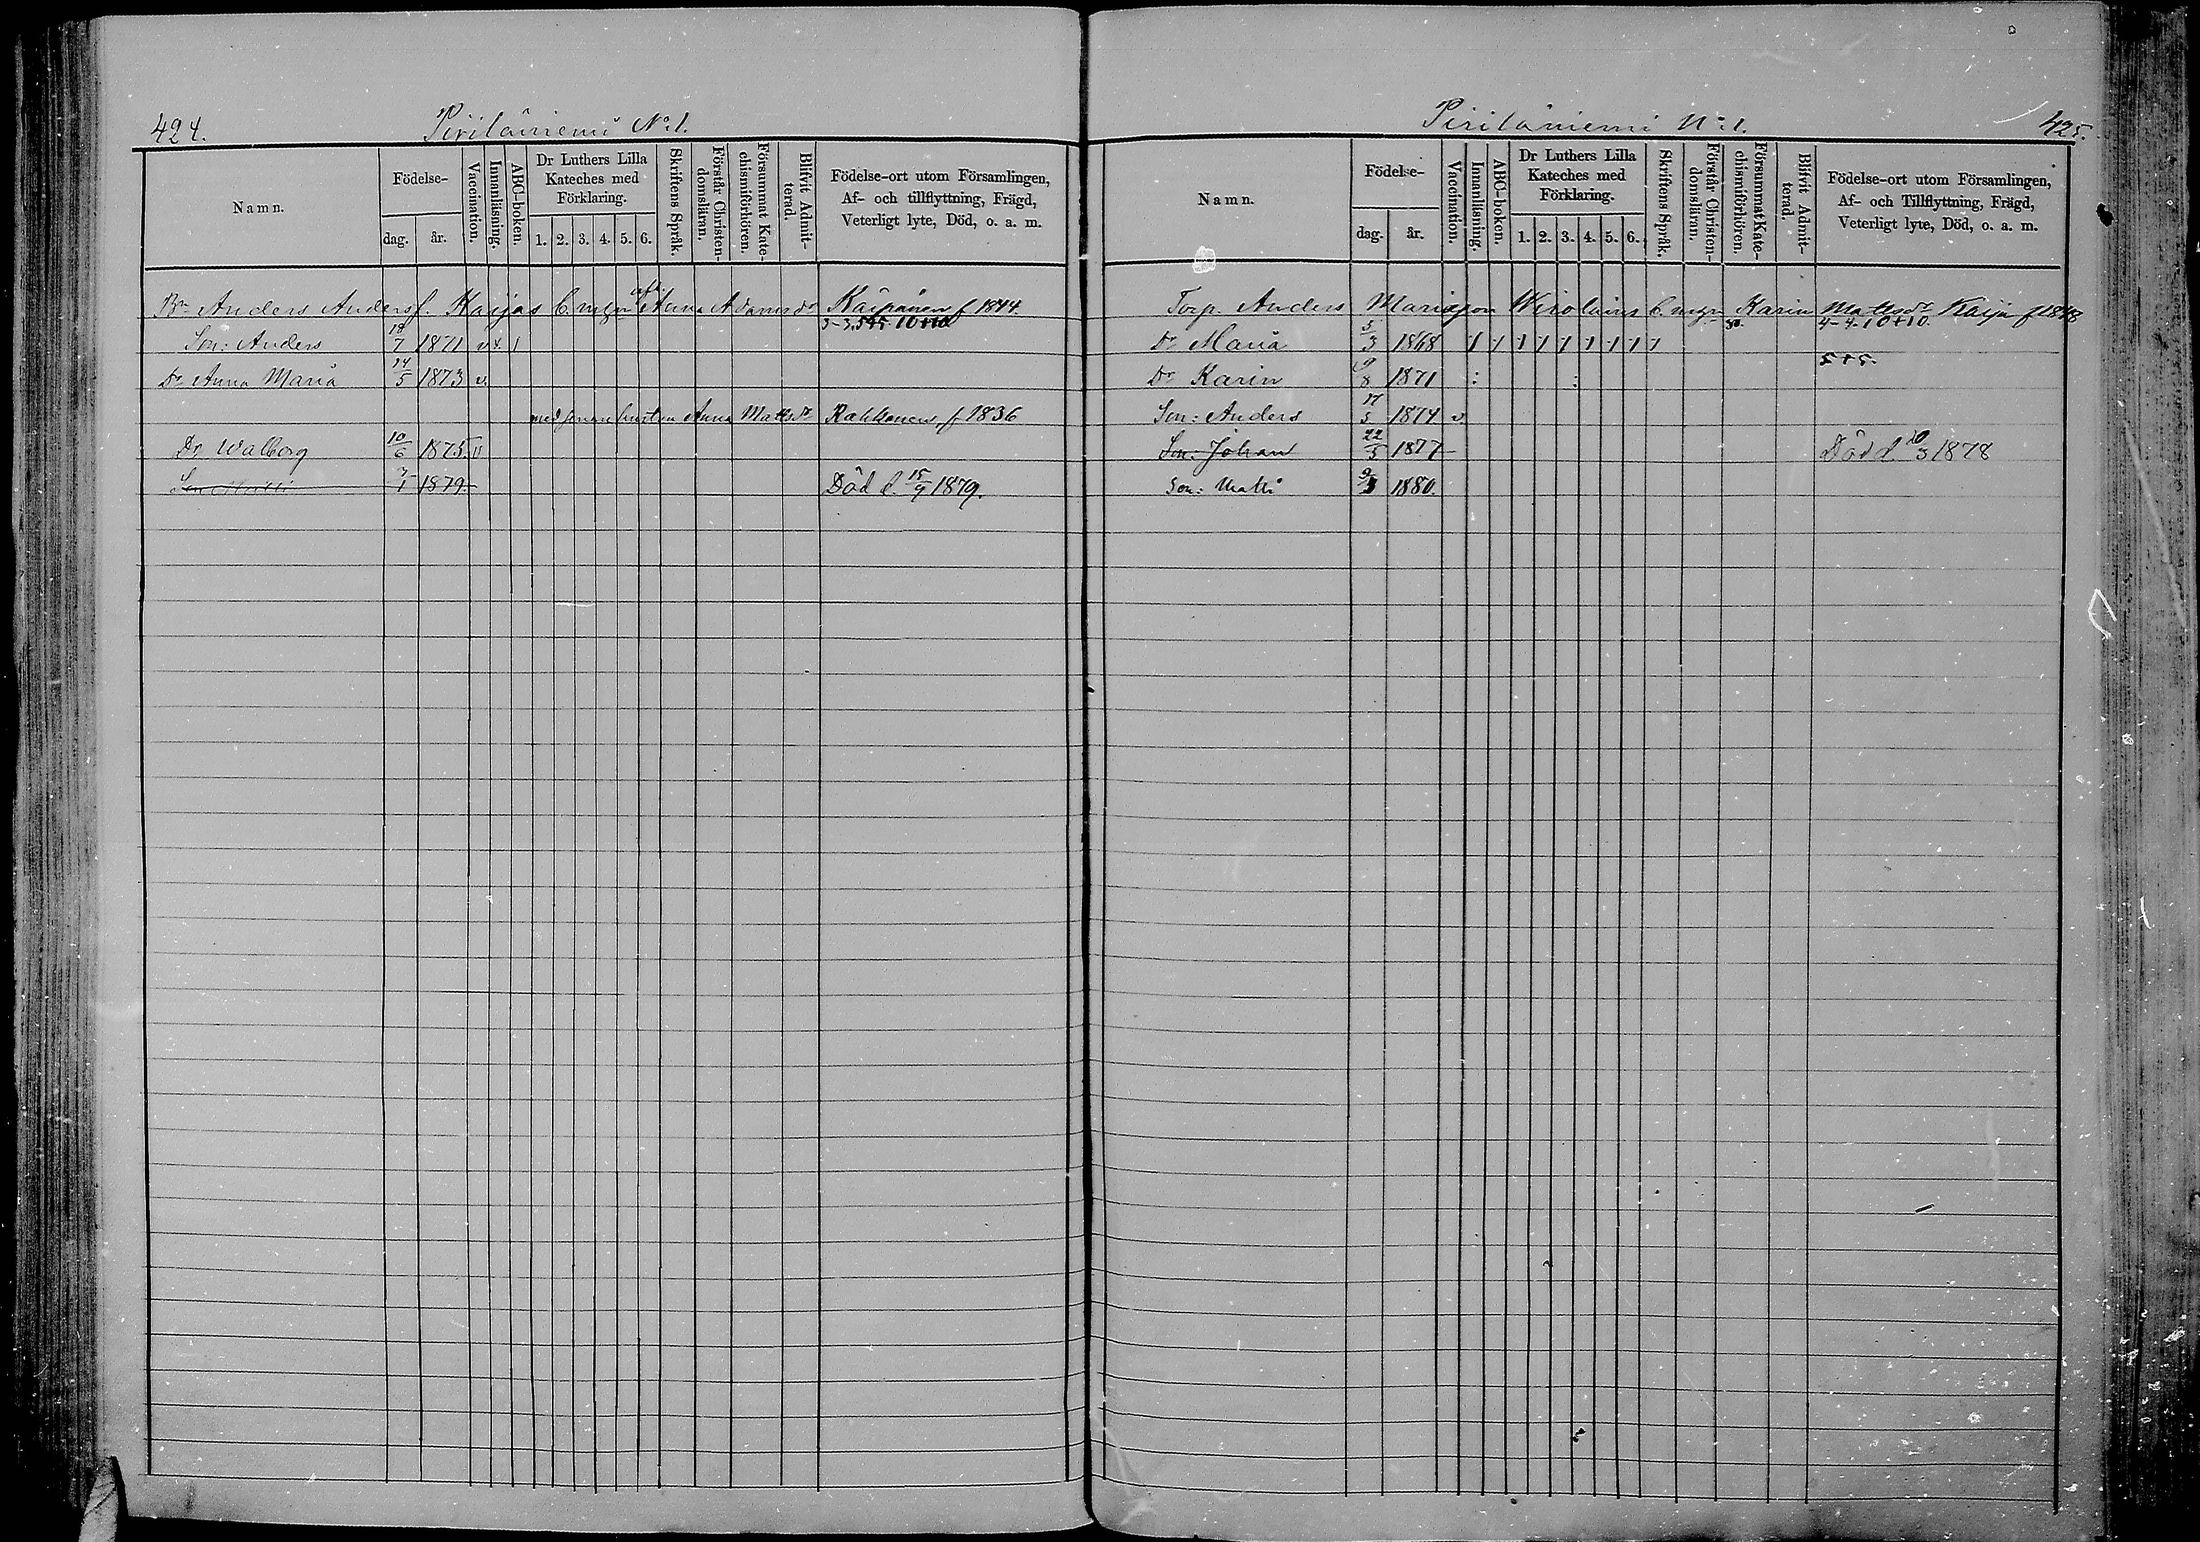 424.
Piriläniemi No 1.
Namn.
Födelse-
dag.
år.
Vaccination.
Innanläsning.
ABC-boken.
Dr Luthers Lilla
Kateches med
Förklaring.
1. 2. 3. 4. 5. 6.
Skriftens Språk.
Förstår Christen-
domsläran.
Försummat Kate-
chismiförhören.
Blifvit Admit-
terad.
Födelse-ort utom Församlingen,
Af- och tillflyttning, Frägd,
Veterligt lyte, Död, o. a. m.
Anders Andersf. Kaijas Anna Adamsdr f 1844.
Son: Anders 18/7 1871 v
Dr Anna Maria 14/5 1873 v.
Anna Mattsdr Rakkonen, f 1836
Dr Walborg 10/6 1875. v
Son Matti 7/1 1879. Död d. 15/9 1879.
Piriläniemi No 1.
425.
Namn.
Födelse-
dag.
år.
Vaccination.
Innanläsning.
ABC-boken.
Dr Luthers Lilla
Kateches med
Förklaring.
1. 2. 3. 4. 5. 6.
Skriftens Språk.
Förstår Christen-
domsläran.
Försummat Kate-
chismiförhören.
Blifvit Admit-
terad.
Födelse-ort utom Församlingen,
Af- och Tillflyttning, Frägd,
Veterligt lyte, Död, o. a. m.
Torp. Anders Wirolainen Karin Mattsdr Kaija
4-4. 10+10.
Dr Maria 5/3 1868 1 1 1 1 1 1 1 1 1
5+5.
Dr Karin 9/8 1871 : :
Son: Anders 17/5 1874 v.
Son: Johan 22/5 1877 Död d. 20/3 1878
Son: Matti 1880.